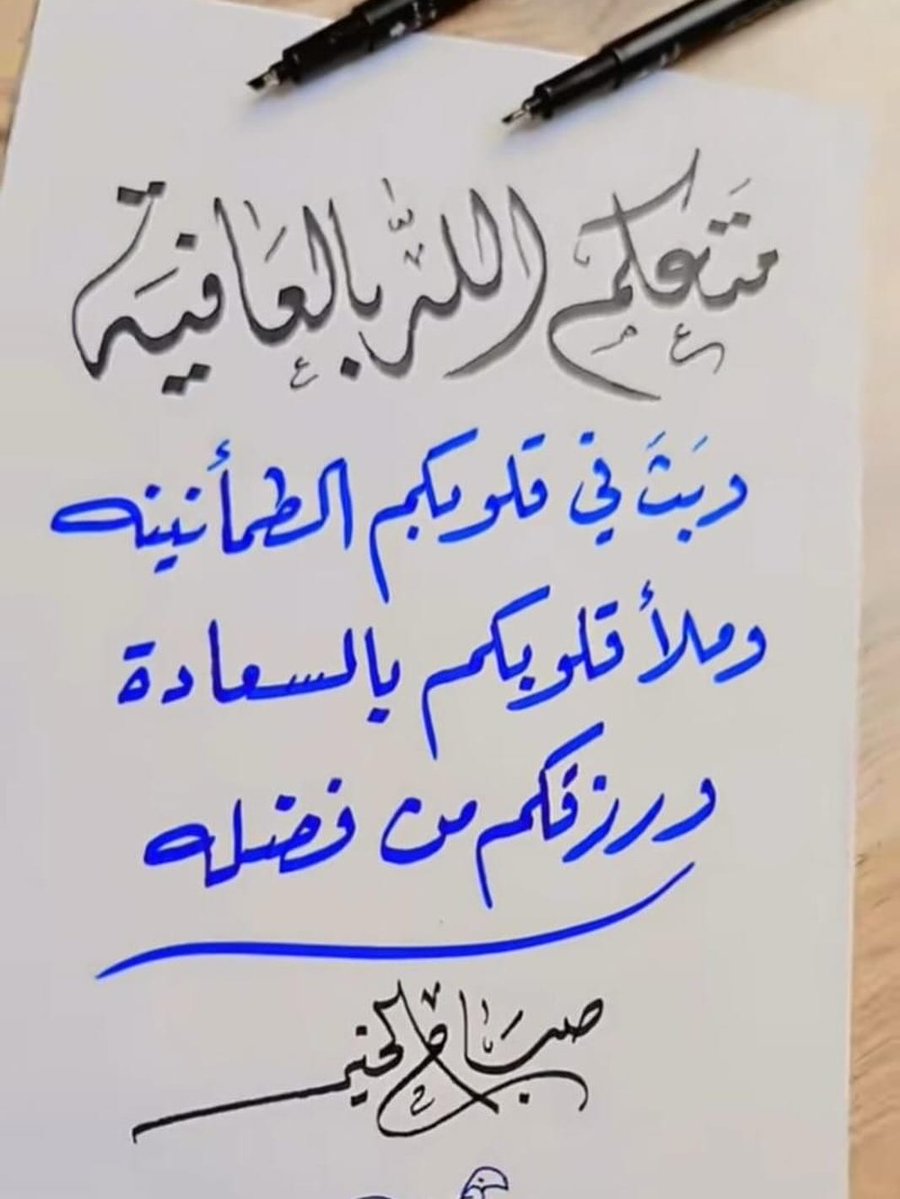 متعكم الله بالعافية
وبَثَ في قلوبكم الطمأنينه
وملأ قلوبكم بالسعادة
ورزقكم من فضله
صباح الخير